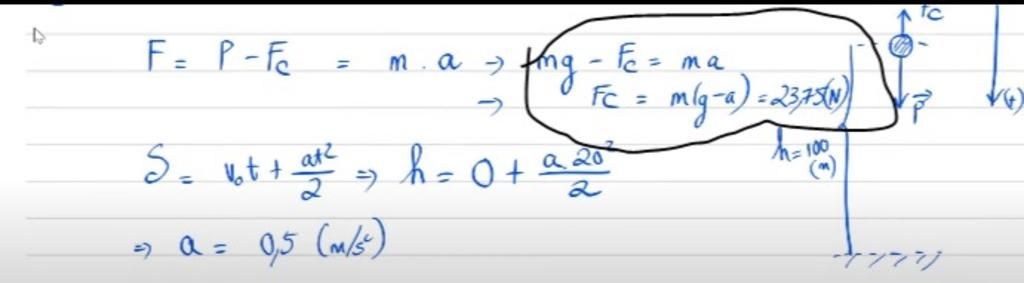 F = P - Fc = m . a → mg - Fc = ma
→ Fc = m(g-a) = 23,75(N)
S = v₀t + at²/2 ⇒ h = 0 + a 20²/2
⇒ a = 0,5 (m/s²)
Fc
P⃗
(+)
h = 100
(m)